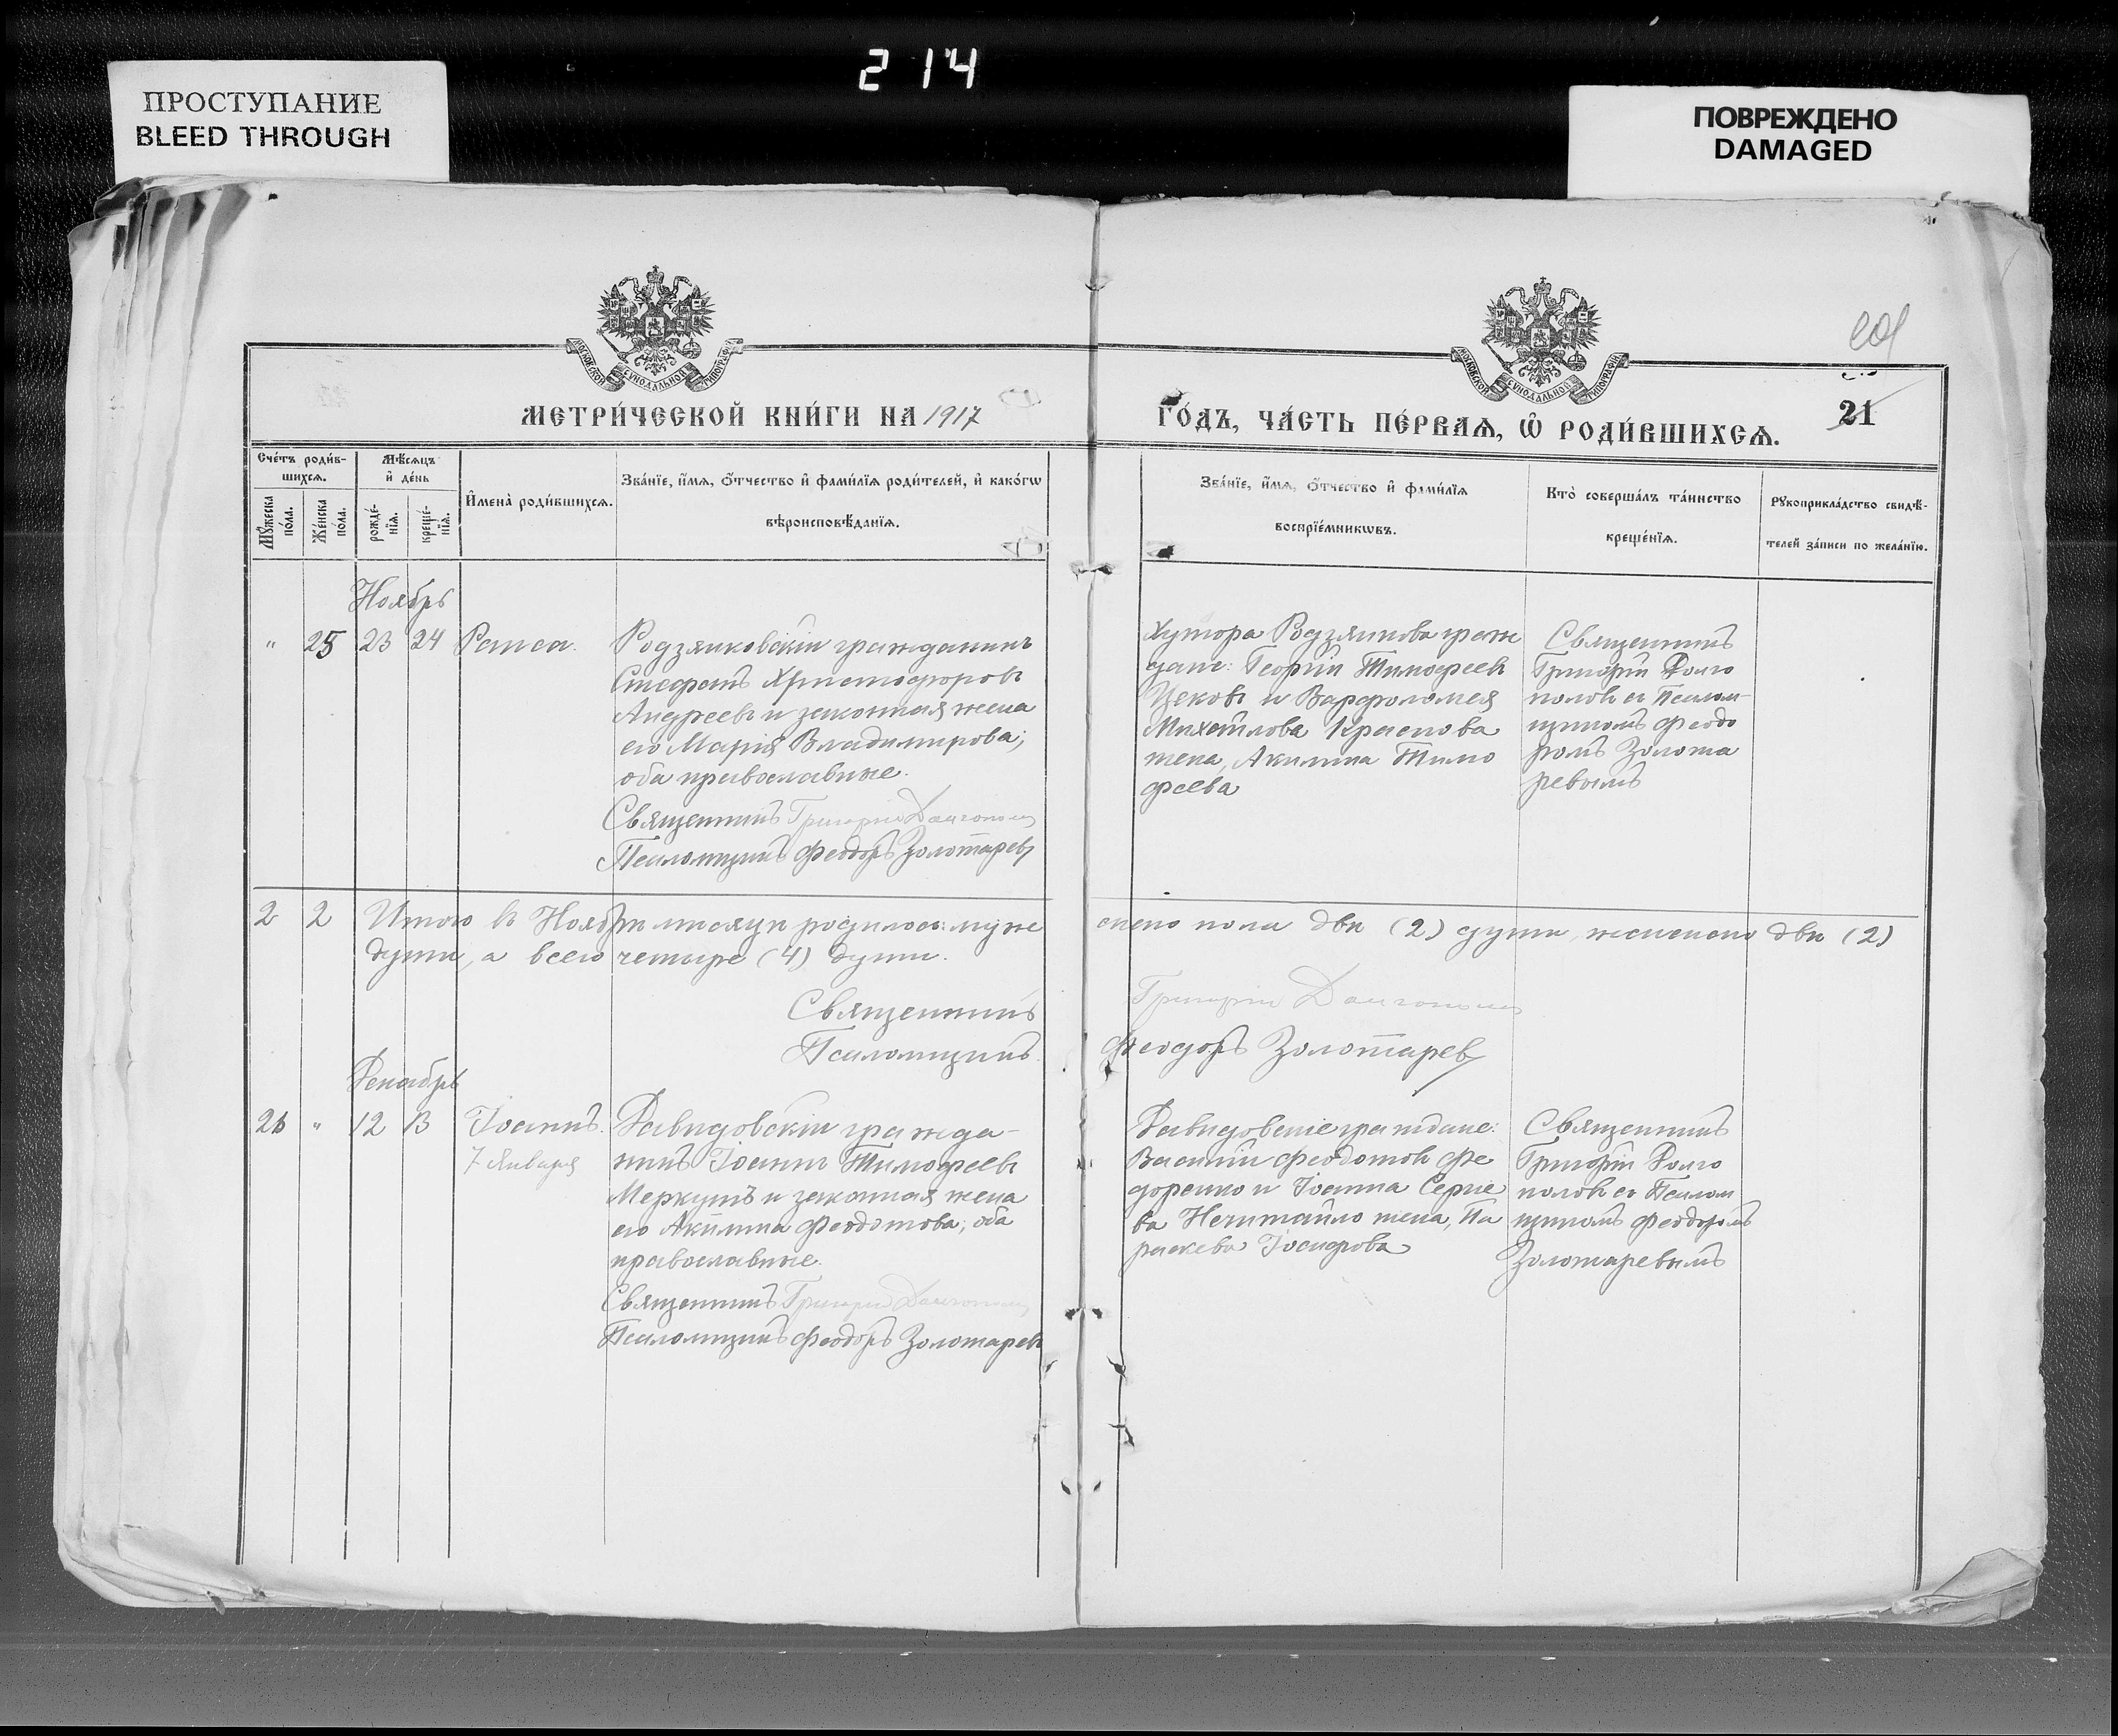 214
ПРОСТУПАНИЕ
BLEED THROUGH
ПОВРЕЖДЕНО
DAMAGED
МОСКОВСКОЙ СѴНОДАЛЬНОЙ ТИПОГРАФІИ
МОСКОВСКОЙ СѴНОДАЛЬНОЙ ТИПОГРАФІИ
МЕТРИ́ЧЕСКОЙ КНИ́ГИ НА 1917
ГО́ДЪ, ЧА́СТЬ ПЕ́РВАѦ, Ѽ РОДИ́ВШИХСѦ.
21
Сче́тъ роди́в-
шихсѧ.
Мѣ́сѧцъ
и҆ де́нь
Мꙋ́жеска
по́ла.
Же́нска
по́ла.
рожде́-
нїѧ.
креще́-
нїѧ.
И҆мена̀ роди́вшихсѧ.
Зва́нїе, и҆́мѧ, ѻ҆́тчество и҆ фами́лїѧ роди́телей, и҆ како́гѡ
вѣроисповѣ́данїѧ.
Зва́нїе, и҆́мѧ, ѻ҆́тчество и҆ фами́лїѧ
воспрїе́мникѡвъ.
Кто̀ соверша́лъ та́инство
креще́нїѧ.
Рꙋкоприкла́дство свидѣ́-
телей за́писи по жела́нїю.
Ноябрь
" 25 23 24 Раиса.
Родзянковскій гражданинъ
Стефанъ Христофоровъ
Андреевъ и законная жена
его Марія Владимирова;
оба православные.
Священникъ Григорій Долгополовъ
Псаломщикъ Феодоръ Золотаревъ
Хутора Родзянкова граж
дане: Георгій Тимофеевъ
Цековъ и Варфоломея
Михайлова Краснова
жена, Акилина Тимо
феева
Священникъ
Григорій Долго
половъ съ Псалом-
щикомъ Феодо
ромъ Золота
ревымъ
2 2 Итого въ Ноябрѣ мѣсяцѣ родилось: муже
ского пола двѣ (2) души, женского двѣ (2)
души, а всего четыре (4) души.
Священникъ Григорій Долгополовъ
Псаломщикъ Феодоръ Золотаревъ
Декабрь
26 " 12 13 Іоаннъ.
7 Января
Давидовскій гражда-
нинъ Іоаннъ Тимофеевъ
Меркутъ и законная жена
его Акилина Феодотова; оба
православные.
Священникъ Григорій Долгополовъ
Псаломщикъ Феодоръ Золотаревъ
Давидовскіе граждане:
Василій Феодотовъ Фе
доренко и Іоанна Сергіе
ва Нечитайло жена, Па
раскева Іосифова
Священникъ
Григорій Долго
половъ съ Псалом
щикомъ Феодоромъ
Золотаревымъ